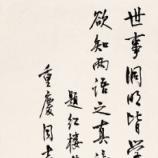 世事洞明皆学
欲知两语之真
题红楼
重慶周